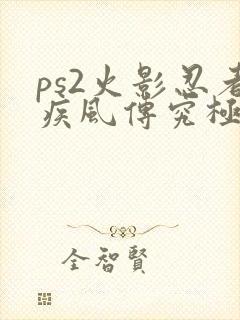 ps2火影忍者
疾風傳究極
全智賢